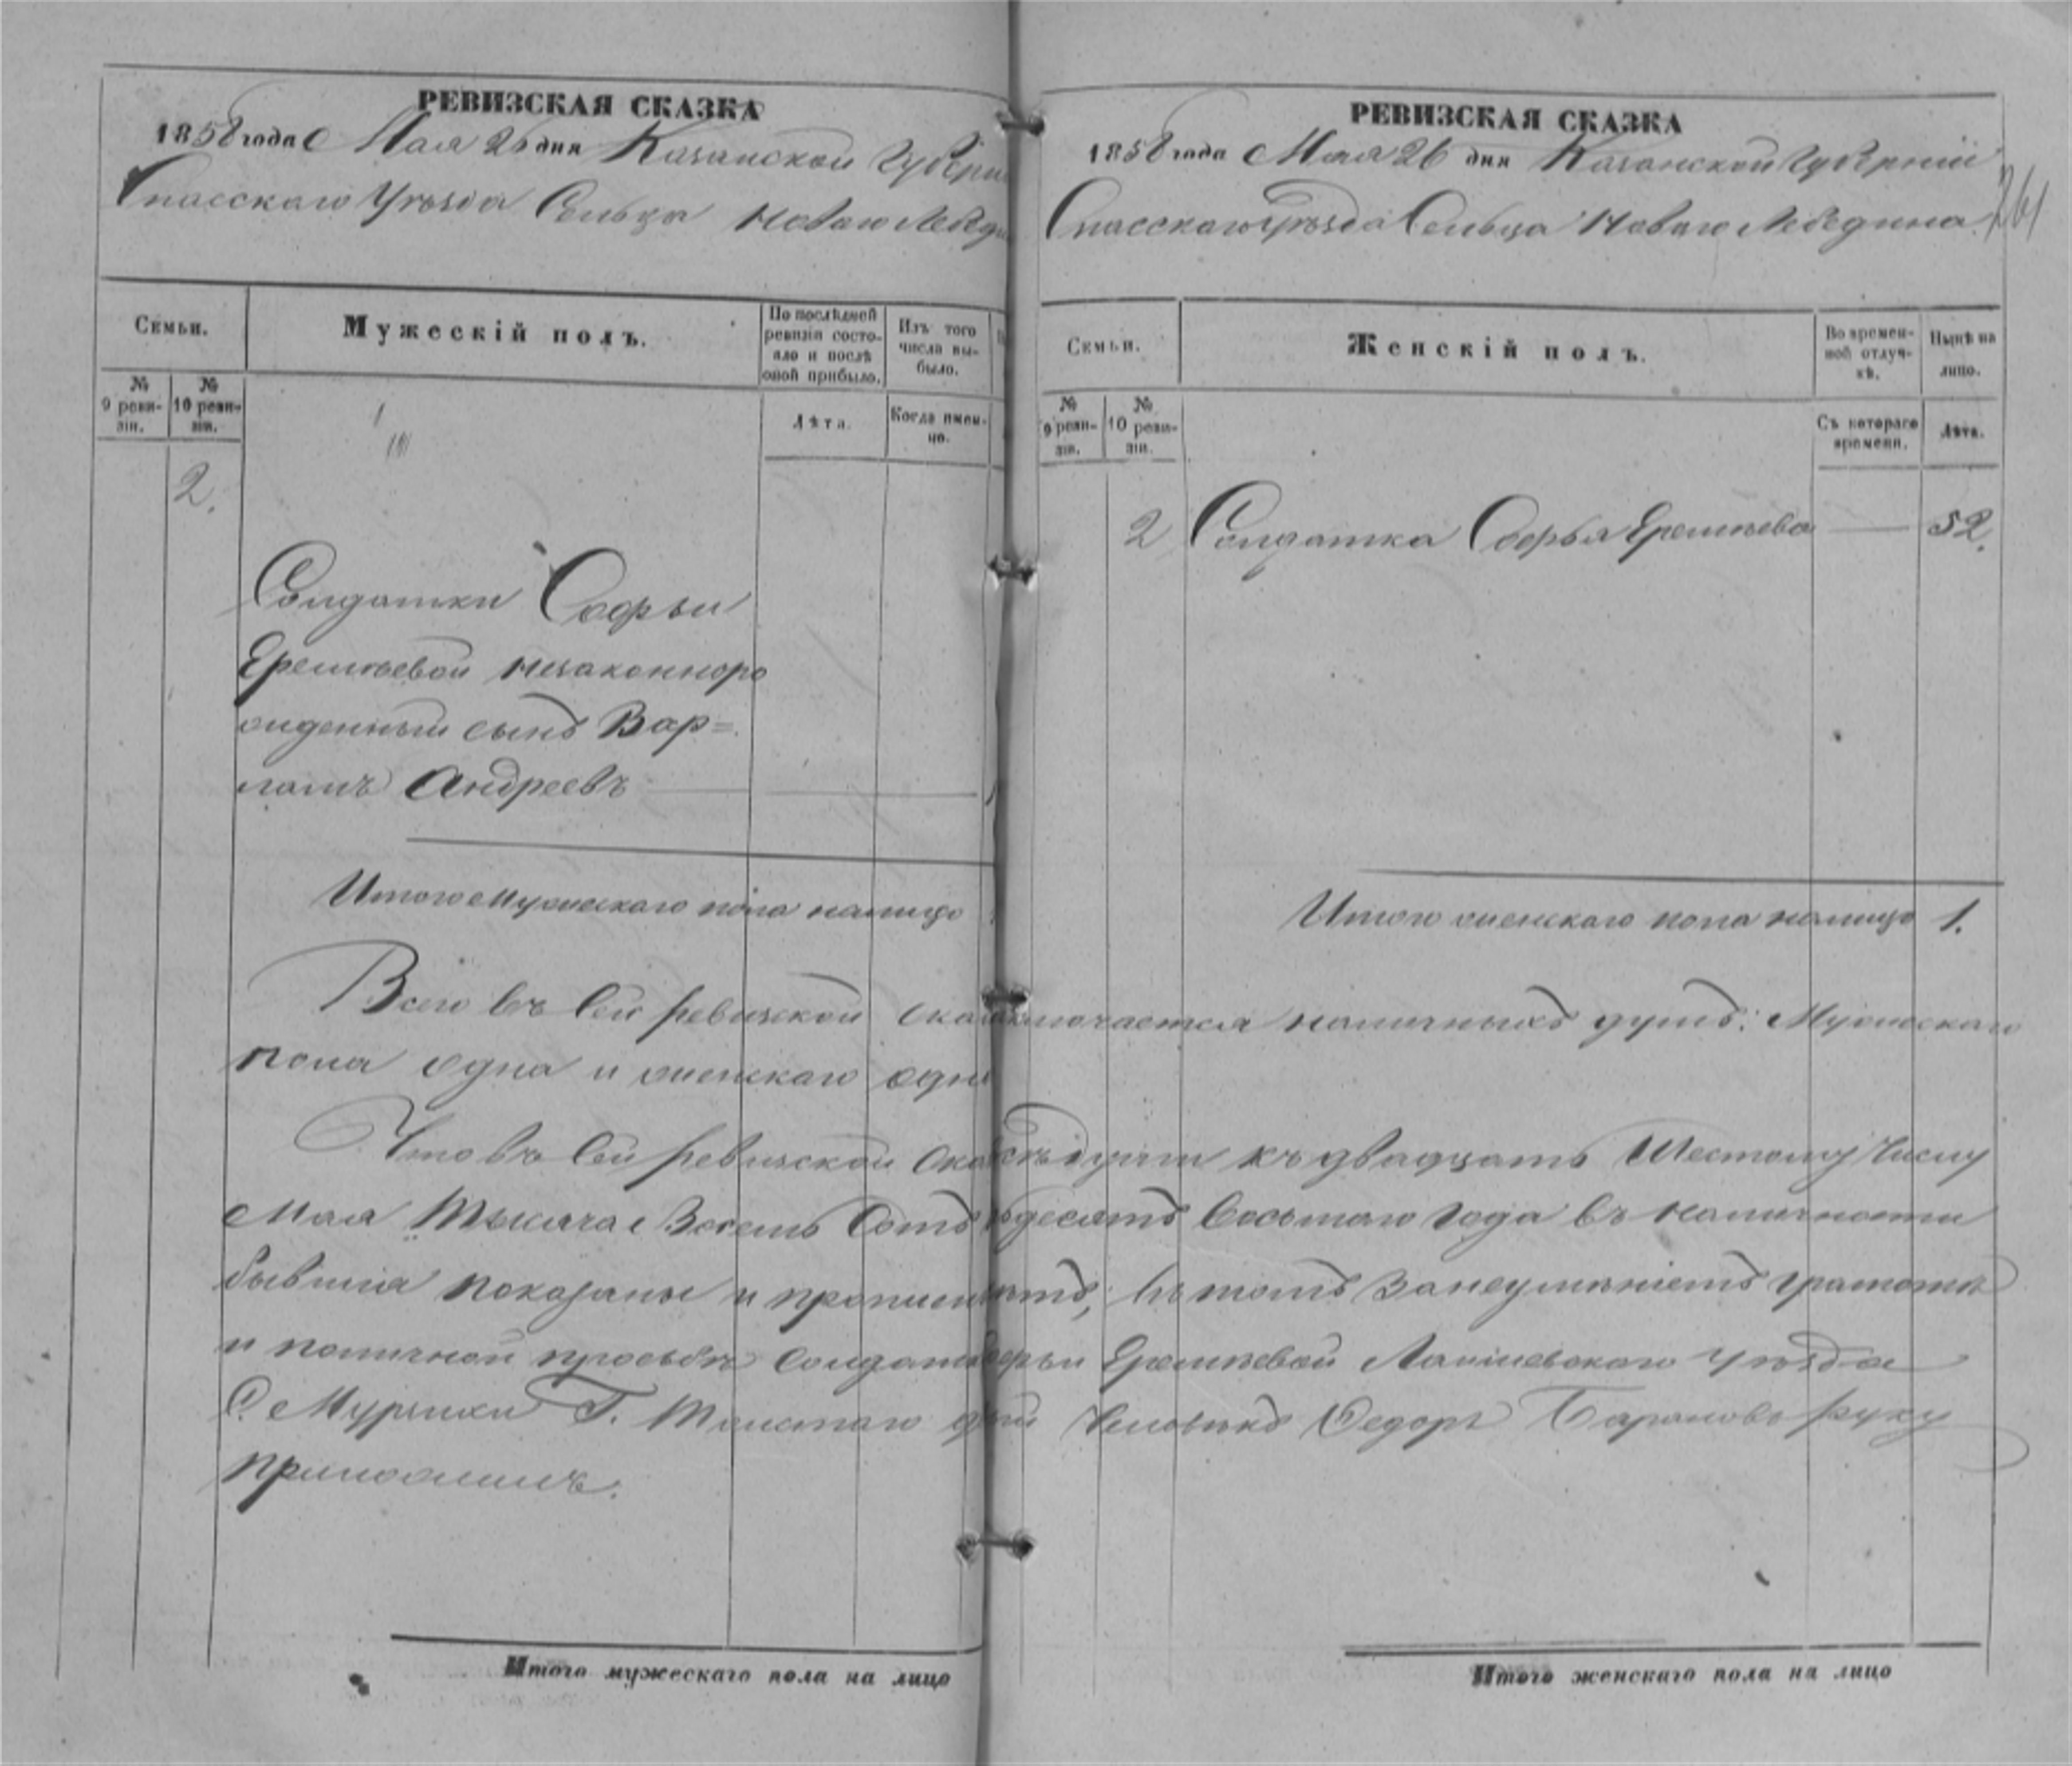 РЕВИЗСКАЯ СКАЗКА
1858 года Мая 26 дня Казанской Губерні
Спасскаго Уѣзда Сельца Новаго Лебеди
Семьи.
Мужескій полъ.
По послѣдней ревизіи состояло и послѣ оной прибыло.
Изъ того числа выбыло.
№ 9 ревизіи.
№ 10 ревизіи.
Лѣта.
Когда именно.
2.
Солдатки Софьи
Еремѣевой незаконноро
жденный сынъ Вар=
ламъ Андреевъ
Итого Мужескаго пола налицо
РЕВИЗСКАЯ СКАЗКА
1858 года Мая 26 дня Казанской Губерніи
Спасскаго Уѣзда Сельца Новаго Лебедина
261
Семьи.
Женскій полъ.
Во временной отлучкѣ.
Нынѣ на лицо.
№ 9 ревизіи.
№ 10 ревизіи.
Съ котораго времени.
Лѣта.
2 Солдатка Софья Еремѣева 52.
Итого женскаго пола налицо 1.
Всего въ Сей ревизской Ска ключается наличныхъ душъ: Мужескаго
пола одна и женскаго одн
Что въ Сей ревизской Ска душъ къ двадцать Шестому Числу
Мая Тысяча Восемь Сотъ десятъ Восьмаго Года въ наличности
бывшія показаны и пропи въ томъ за неумѣніемъ грамотѣ
и по личной просьбѣ Солдатк офьи Еремѣевой Лаишевскаго Уѣзда
С. Мурзихи Г. Толстаго Человѣкъ Федоръ Барановъ руку
приложилъ.
Итого мужескаго пола на лицо
Итого женскаго пола на лицо